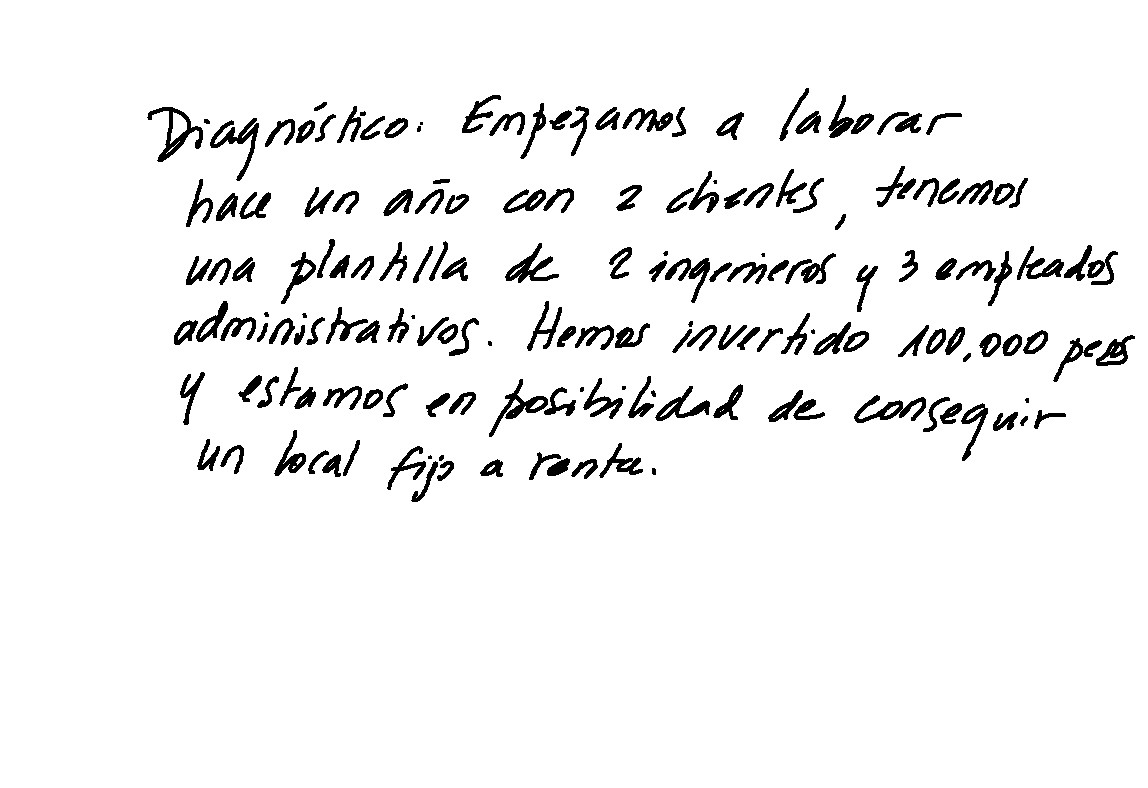 Diagnóstico: Empezamos a laborar
hace un año con 2 clientes, tenemos
una plantilla de 2 ingenieros y 3 empleados
administrativos. Hemos invertido 100,000 pesos
y estamos en posibilidad de conseguir
un local fijo a renta.